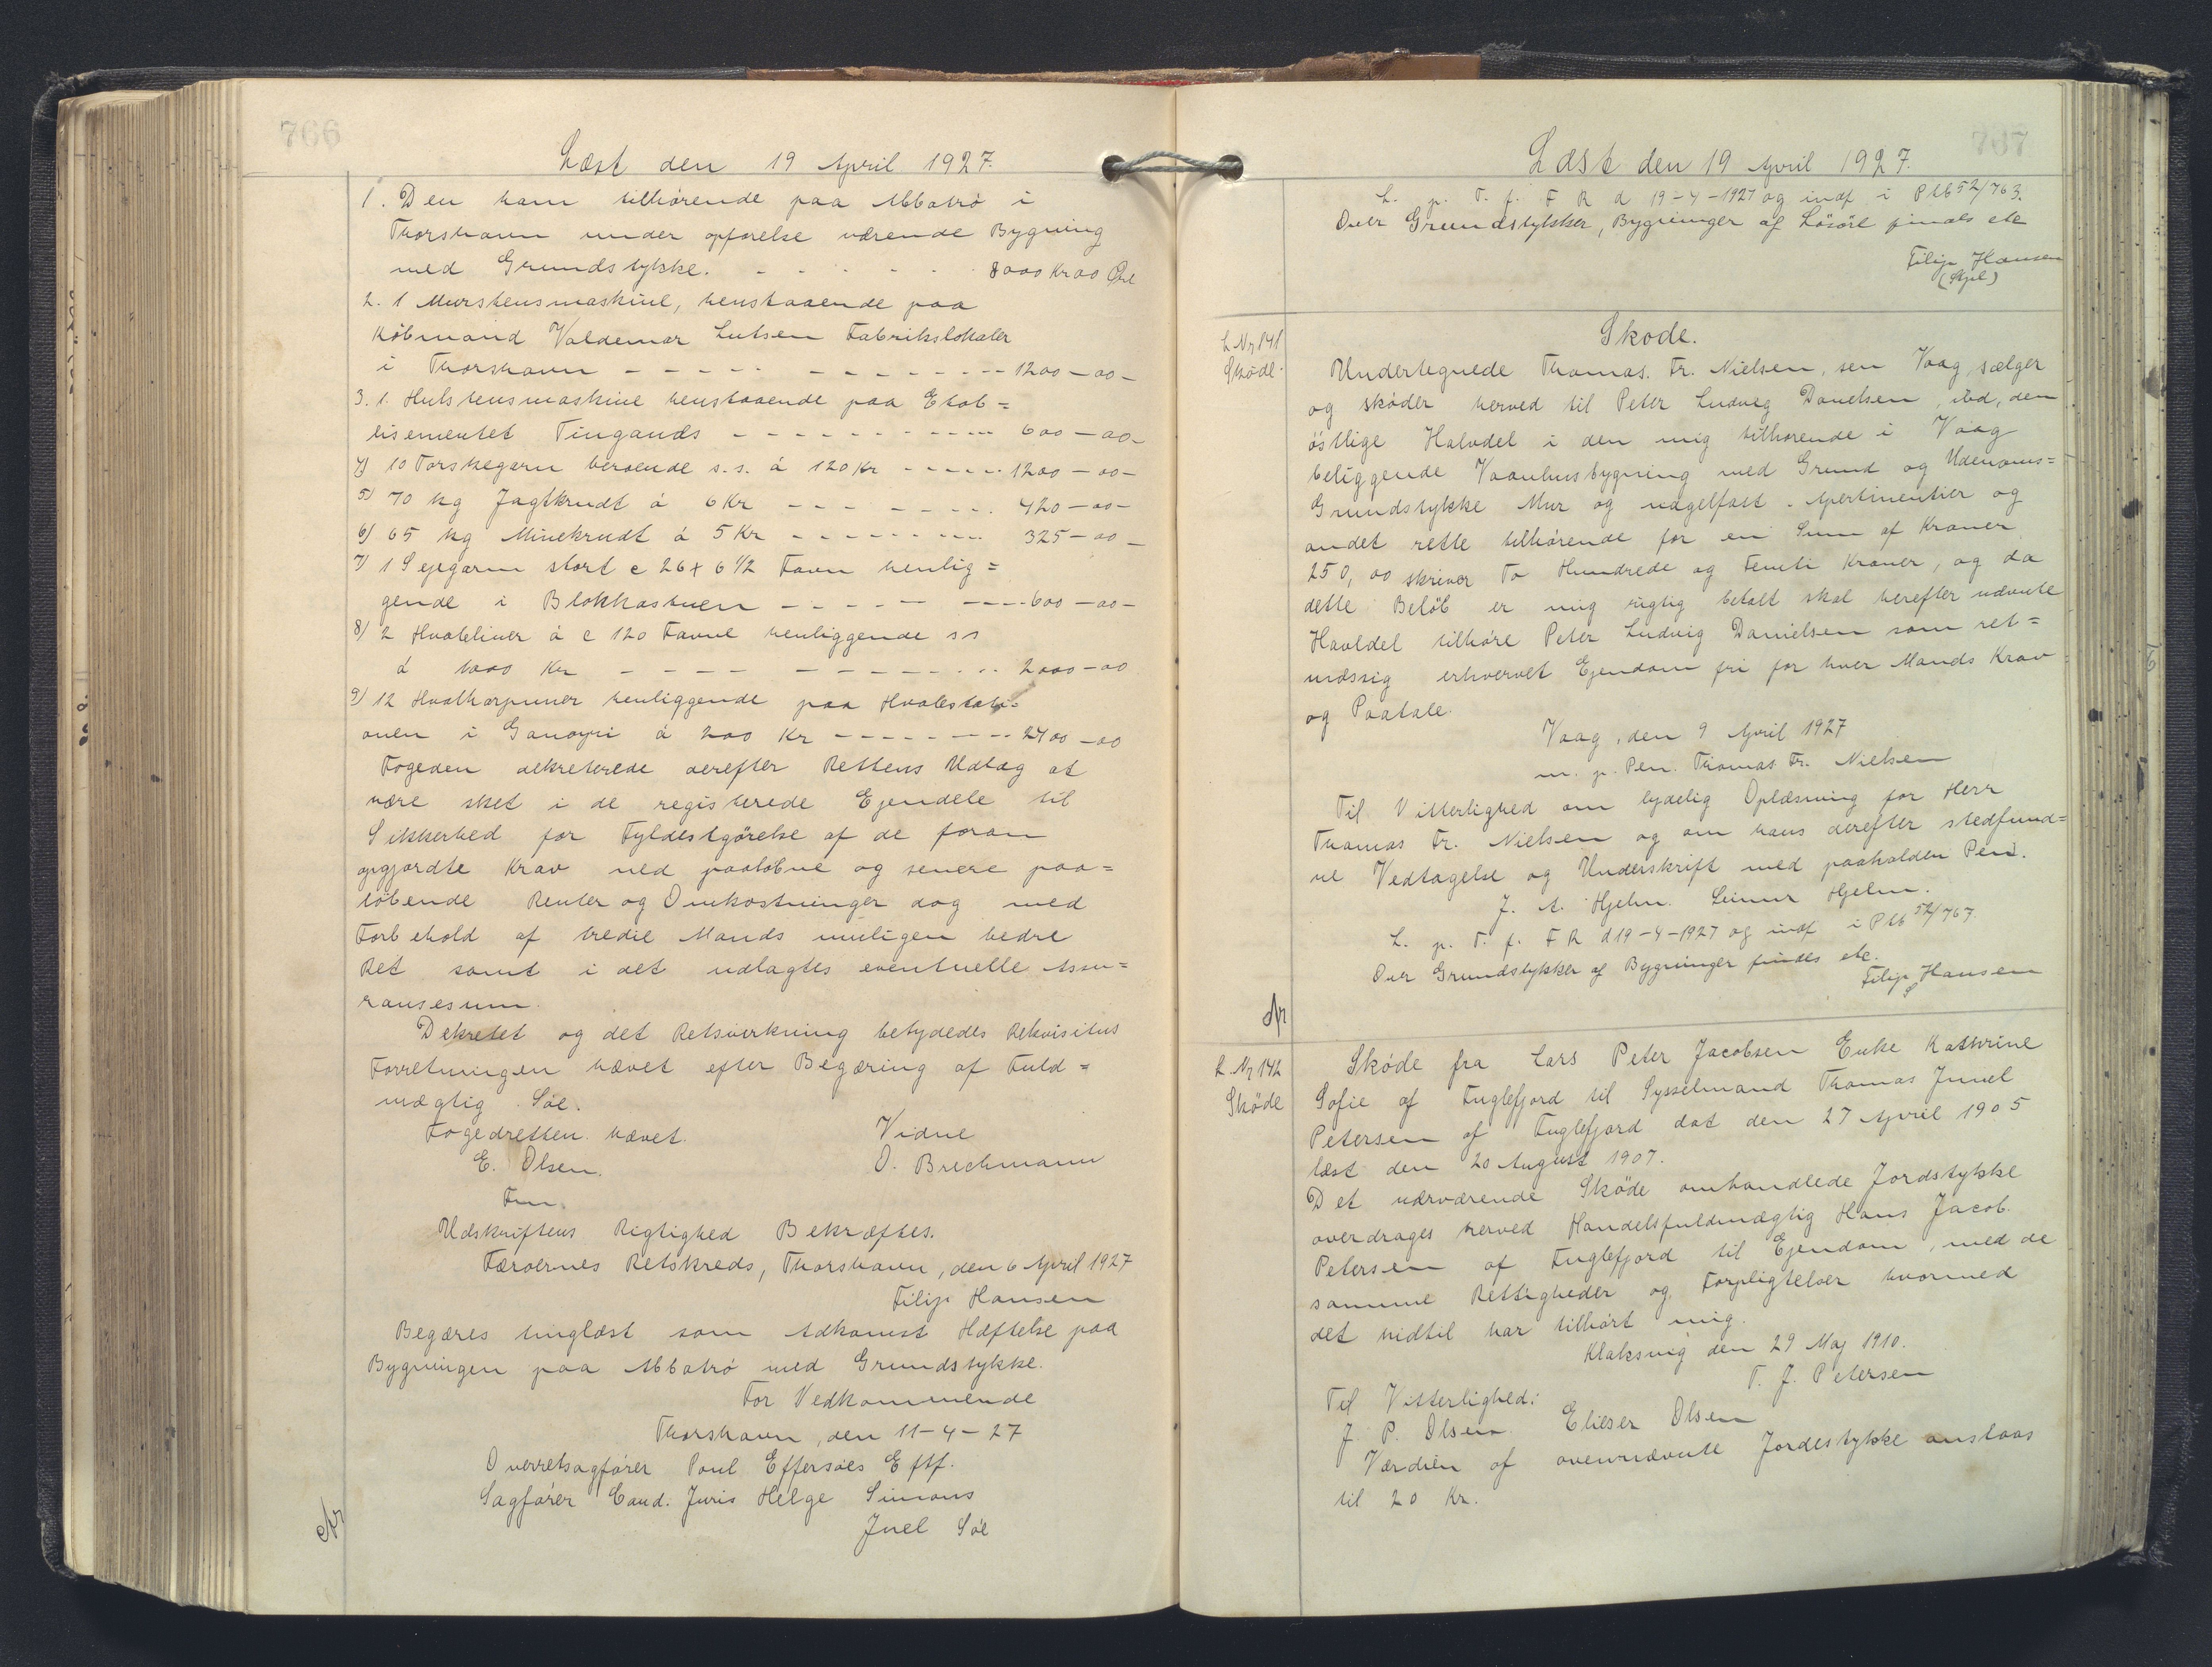 766
Læst den 19 April 1927.
1. Den ham tilhørende paa Abbatrø i
Thorshavn under opførelse værende Bygning
med Grundstykke. - - - - - 8000 Kr 00 Øre
2. 1 Murstensmaskine, henstaaende paa
Købmand Valdemar Lutsen Fabrikslokaler
i Thorshavn - - - - - - - - - - - 1200-00-
3. 1. Hulstensmaskine henstaaende paa Etab=
lisementet Tingands - - - - - - - - - 600-00-
4) 10 Torskegarn beroende s.s. á 120 Kr - - - - - 1200-00-
5) 70 kg Jagtkrudt á 6 Kr - - - - - - - - 420-00-
6) 65 kg Minekrudt á 5 Kr - - - - - - - - 325-00-
7) 1 Sejegarn stort c 26 x 6 1/2 Favn henlig=
gende i Blokkastuen - - - - - - - - - 600-00-
8) 2 Hvalliner á c 120 Favne henliggende s s
á 1000 Kr - - - - - - - - - - - 2000-00
9) 12 Hvalharpuner henliggende paa Hvalestati=
onen i Gånoyri á 200 Kr - - - - - - - 2400-00
Fogeden dekreterede derefter Rettens Udlæg at
være sket i de registrerede Ejendele til
Sikkerhed for Fyldestgørelse af de foran
opgjordte Krav med paaløbne og senere paa=
løbende Renter og Omkostninger dog med
Forbehold af tredie Mands muligen bedre
Ret samt i det udlagtes eventuelle Assu=
ransesum.
Dekretet og det Retsvirkning betydedes Rekvisitus
Forretningen hævet efter Begæring af Fuld=
mægtig Søe.
Fogedretten hævet. Vidne
E. Olsen. O. Brechmann
Fm.
Udskriftens Rigtighed Bekræftes.
Færøernes Retskreds, Thorshavn, den 6 April 1927
Filip Hansen
Begæres tinglæst som Adkomst Hæftelse paa
Bygningen paa Abbatrø med Grundstykke.
For Vedkommende
Thorshavn, den 11-4-27
Overretsagfører Poul Effersøes Eftf.
Sagfører Cand. Juris Helge Simons
Juel Søe
767
Læst den 19 April 1927.
L. p. T. f. F R d 19-4-1927 og indf i Ptb 52/763.
Over Grundstykker, Bygninger af Løsøre findes ete
Filip Hansen
L Nr 141
Skøde.
Skøde.
Undertegnede Thomas. Fr. Nielsen, sen Vaag, sælger
og skøder herved til Peter Ludvig Danielsen, ibd, den
østlige Halvdel i den mig tilhørende i Vaag
beliggende Vaanhusbygning med Grund og Udenoms=
Grundstykke Mur og nagelfast. Apertinentier og
andet rette tilhørende for en Sum af Kroner
250,00 skriver To Hundrede og Femti Kroner, og da
dette Beløb er mig rigtig betalt skal herefter nævnte
Havldel tilhøre Peter Ludvig Danielsen som ret=
mæssig erhvervet Ejendom fri for hver Mands Krav
og Paatale.
Vaag, den 9 April 1927
m. p. Pen. Thomas Fr. Nielsen
Til Vitterlighed om lydelig Oplæsning for Herr
Thomas Fr. Nielsen og om hans derefter stedfund=
ne Vedtagelse og Underskrift med paaholden Pen.
J. A. Hjelm. Hjelm.
L. p. T. f. F R d 19-4-1927 og indf i Ptb 52/767.
Over Grundstykker af Bygninger findes ete.
Filip Hansen
L Nr 142
Skøde
Skøde fra Lars Peter Jacobsen Enke Kathrine
Sofie af Fuglefjord til Sysselmand Thomas Juuel
Petersen af Fuglefjord dat den 27 April 1905
læst den 20 August 1907.
Det nærværende Skøde omhandlede Jordstykke
overdrages herved Handelsfuldmægtig Hans Jacob
Petersen af Fuglefjord til Ejendom, med de
samme Rettigheder og Forpligtelser hvormed
det hidtil har tilhørt mig.
Klaksvig den 29 Maj 1910.
T. J. Petersen
Til Vitterlighed:
J. P. Olsen Elieser Olsen
Værdien af ovennævnte Jordestykke anslaas
til 20 Kr.